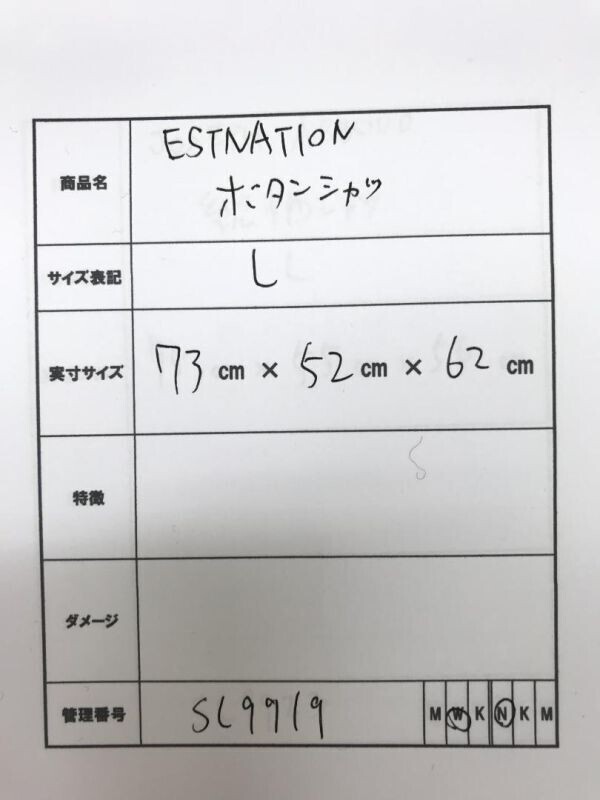 商品名 ESTNATION
ボタンシャツ
サイズ表記 L
実寸サイズ 73 cm × 52 cm × 62 cm
特徴
ダメージ
管理番号 SL9919 M W K N K M